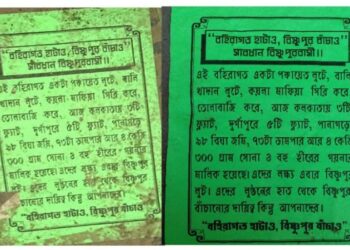 "বহিরাগত হাটাও, বিষ্ণুপুর বাঁচাও"
সাবধান বিষ্ণুপুরবাসী।।
এই বহিরাগত একটা পঞ্চায়েত লুটে, বালি
খাদান লুটে, কয়লা মাফিয়া গিরি করে,
তোলাবাজি করে, আজ কলকাতায় ৩টি
ফ্ল্যাট, দুর্গাপুরে ৫টি ফ্ল্যাট, পানাগড়ে
২৮ বিঘা জমি, ৭০টা ডাম্পার আর ৪ কেজি
৩০০ গ্রাম সোনা ও বহু হীরের গয়নার
মালিক হয়েছে। এদের লক্ষ্য এবার বিষ্ণুপুর
লুট। এদের লুণ্ঠনের হাত থেকে বিষ্ণুপুর
বাঁচানোর দায়িত্ব কিন্তু আপনাদের।
"বহিরাগত হাটাও, বিষ্ণুপুর বাঁচাও"
"বহিরাগত হাটাও, বিষ্ণুপুর বাঁচাও"
সাবধান বিষ্ণুপুরবাসী।।
এই বহিরাগত একটা পঞ্চায়েত লুটে, বালি
খাদান লুটে, কয়লা মাফিয়া গিরি করে,
তোলাবাজি করে, আজ কলকাতায় ৩টি
ফ্ল্যাট, দুর্গাপুরে ৫টি ফ্ল্যাট, পানাগড়ে
২৮ বিঘা জমি, ৭০টা ডাম্পার আর ৪ কেজি
৩০০ গ্রাম সোনা ও বহু হীরের গয়নার
মালিক হয়েছে। এদের লক্ষ্য এবার বিষ্ণুপুর
লুট। এদের লুণ্ঠনের হাত থেকে বিষ্ণুপুর
বাঁচানোর দায়িত্ব কিন্তু আপনাদের।
"বহিরাগত হাটাও, বিষ্ণুপুর বাঁচাও"